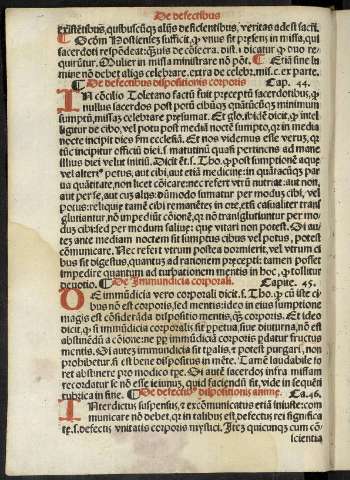 De defectibus
existētibus, quibuscūqʒ alijs deficientibus, veritas adest sacrī.
¶ Scd'm Hostiensez sufficit, qʒ vnus sit presens in missa, qui
sacerdoti respōdeat: quis de cōsecra. dist. i. dicatur qʒ duo re-
quirūtur. Mulier in missa ministrare nō pōt. ¶ Etiā sine lu-
mine nō debet aliqs celebrare. extra de celebr. mis. c. ex parte.
¶ De defectibus dispositionis corporis Cap. 44.
IN cōcilio Toletano factū fuit preceptū sacerdotibus, qʒ
nullus sacerdos post potū cibūqʒ quātūcūqʒ minimum
sumptū, missaʒ celebrare presumat. Et glo. ibidē dicit, qʒ intel
ligitur de cibo, vel potu post mediā noctē sumpto, qʒ in media
nocte incipit dies fm ecclesiā. Et nos videmus esse veruʒ, qʒ
tūc incipitur officiū diei. s. matutinū quasi pertinēs ad mane
illius diei velut initiū. Dicit ēt. s. Tho. qʒ post sumptionē aque
vel alterius potus, aut cibi, aut etiā medicine: in quātacūqʒ par
ua quātitate, non licet cōicare: nec refert vtrū nutriat: aut non,
aut per se, aut cuʒ alijs: dūmodo sumatur per modus cibi, vel
potus: reliquie tamē cibi remanētes in ore, etsi casualiter trans
glutiantur, nō impediūt cōionē, qʒ nō transglutiuntur per mo-
dus cibi: sed per modum saliue: que vitari non potest. Si au-
tez ante mediam noctem sit sumptus cibus vel potus, potest
cōmunicare. Nec refert vtrum postea dormierit, vel vtrum ci
bus sit digestus, quantuʒ ad rationem precepti: tamen posset
impedire quantum ad turbationem mentis in hoc, qʒ tollitur
deuotio. ¶ De Immundicia corporali. Capite. 45.
DE immūdicia vero corporali dicit. s. Tho. qʒ cū iste ci-
bus nō est corporis, sed mentis: ideo in eius sumptione
magis est cōsiderāda dispositio mentis, qʒ corporis. Et ideo
dicit, qʒ si immūdicia corporalis sit ppetua, siue diuturna, nō est
abstinēdū a cōione: ne pp immūdiciā corporis pdatur fructus
mentis. Si autez immundicia sit tpalis, et potest purgari, non
prohibetur si est bene dispositus in mēte. Tamē laudabile fo
ret abstinere pro modico tpe. Si autē sacerdos infra missam
recordatur se nō esse ieiunuʒ, quid faciendū sit, vide in sequēti
rubrica in fine. ¶ De defectibus dispositionis anime. Ca. 46.
INterdictus suspensus, et excōmunicatus etiā iniuste: com
municare nō debet, qʒ in talibus est, defectus rei significa
te, s. defectus vnitatis corporis mystici. Itez quicunqʒ cum cō-
scientia